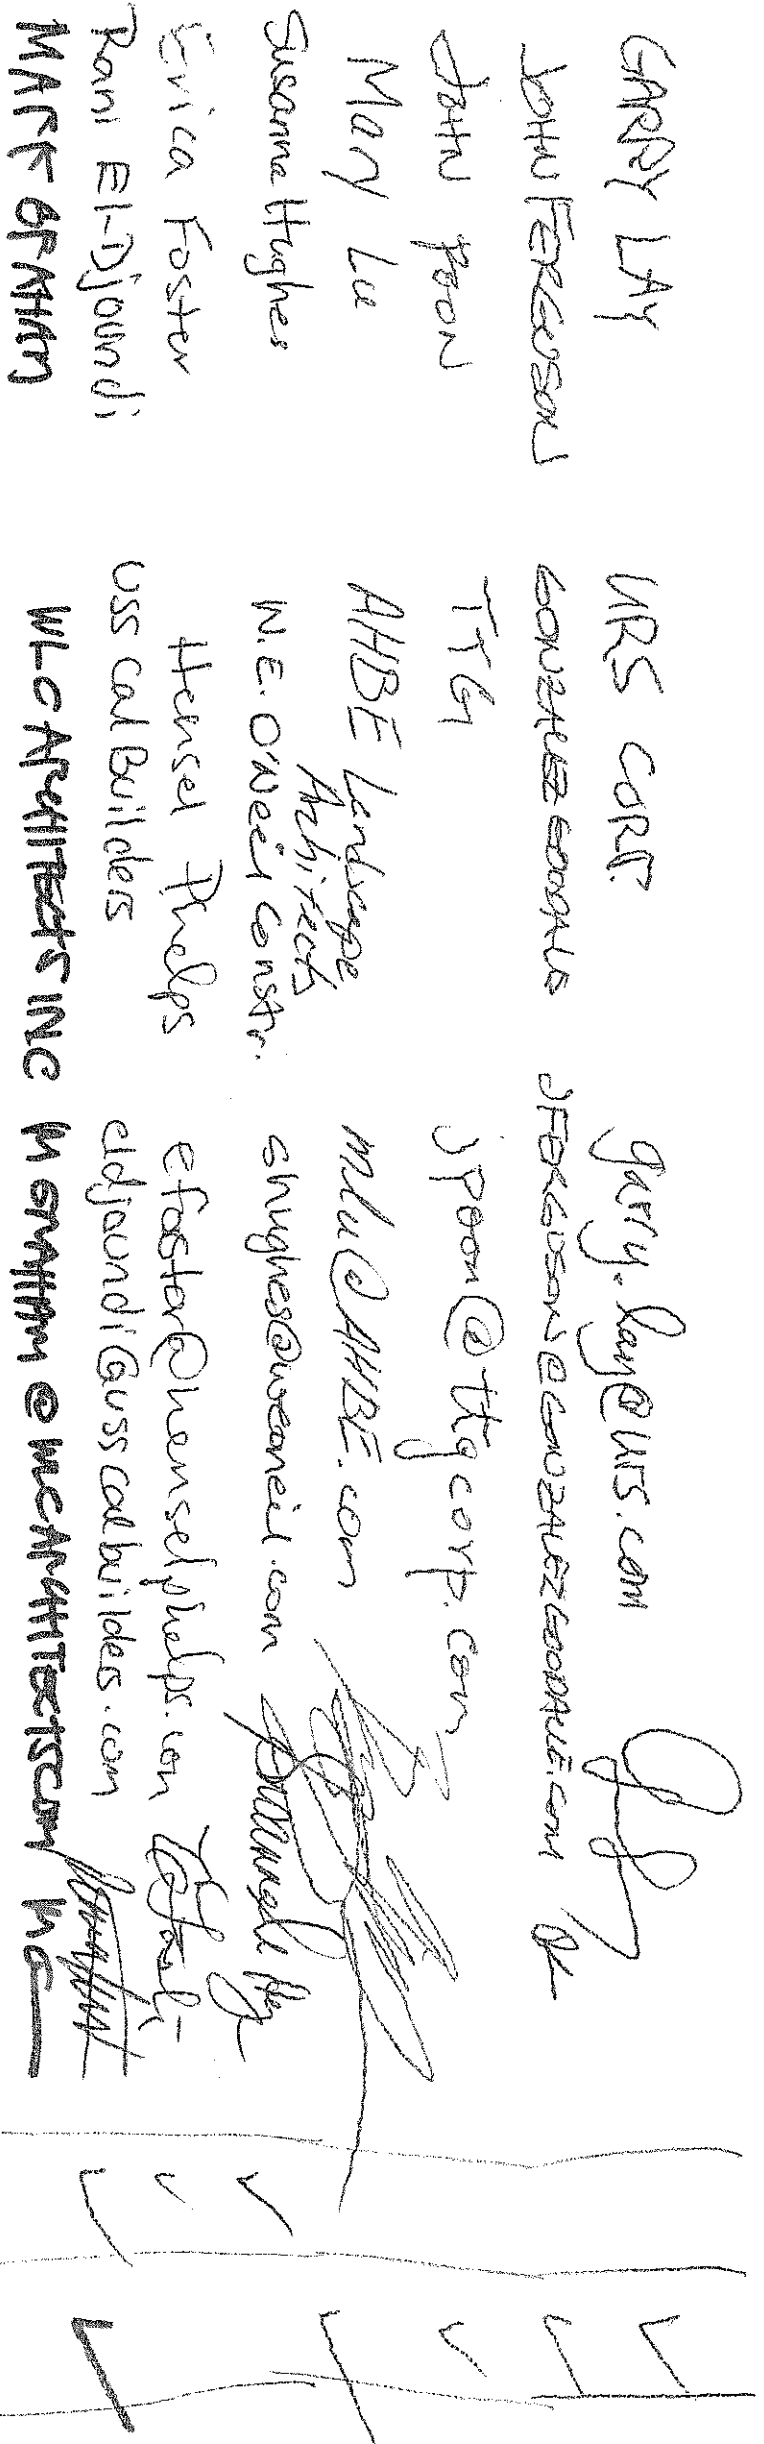 GARRY LAY URS CORP. garry.lay@urs.com
JOHN FERGUSON GONZALEZ GOODALE JFERGUSON@GONZALEZGOODALE.COM
JOHN POON TTG jpoon@ttgcorp.com
Mary Lu AHBE Landscape Architects mlu@AHBE.com
Susanne Hughes W.E. O'Neil Constr. shughes@weoneil.com
Erica Foster Hensel Phelps efoster@henselphelps.com
Rani El-Djoundi USS Cal Builders eldjoundi@usscalbuilders.com
MARK GRAHAM WLC ARCHITECTS INC MGRAHAM@WLCARCHITECTS.COM MG